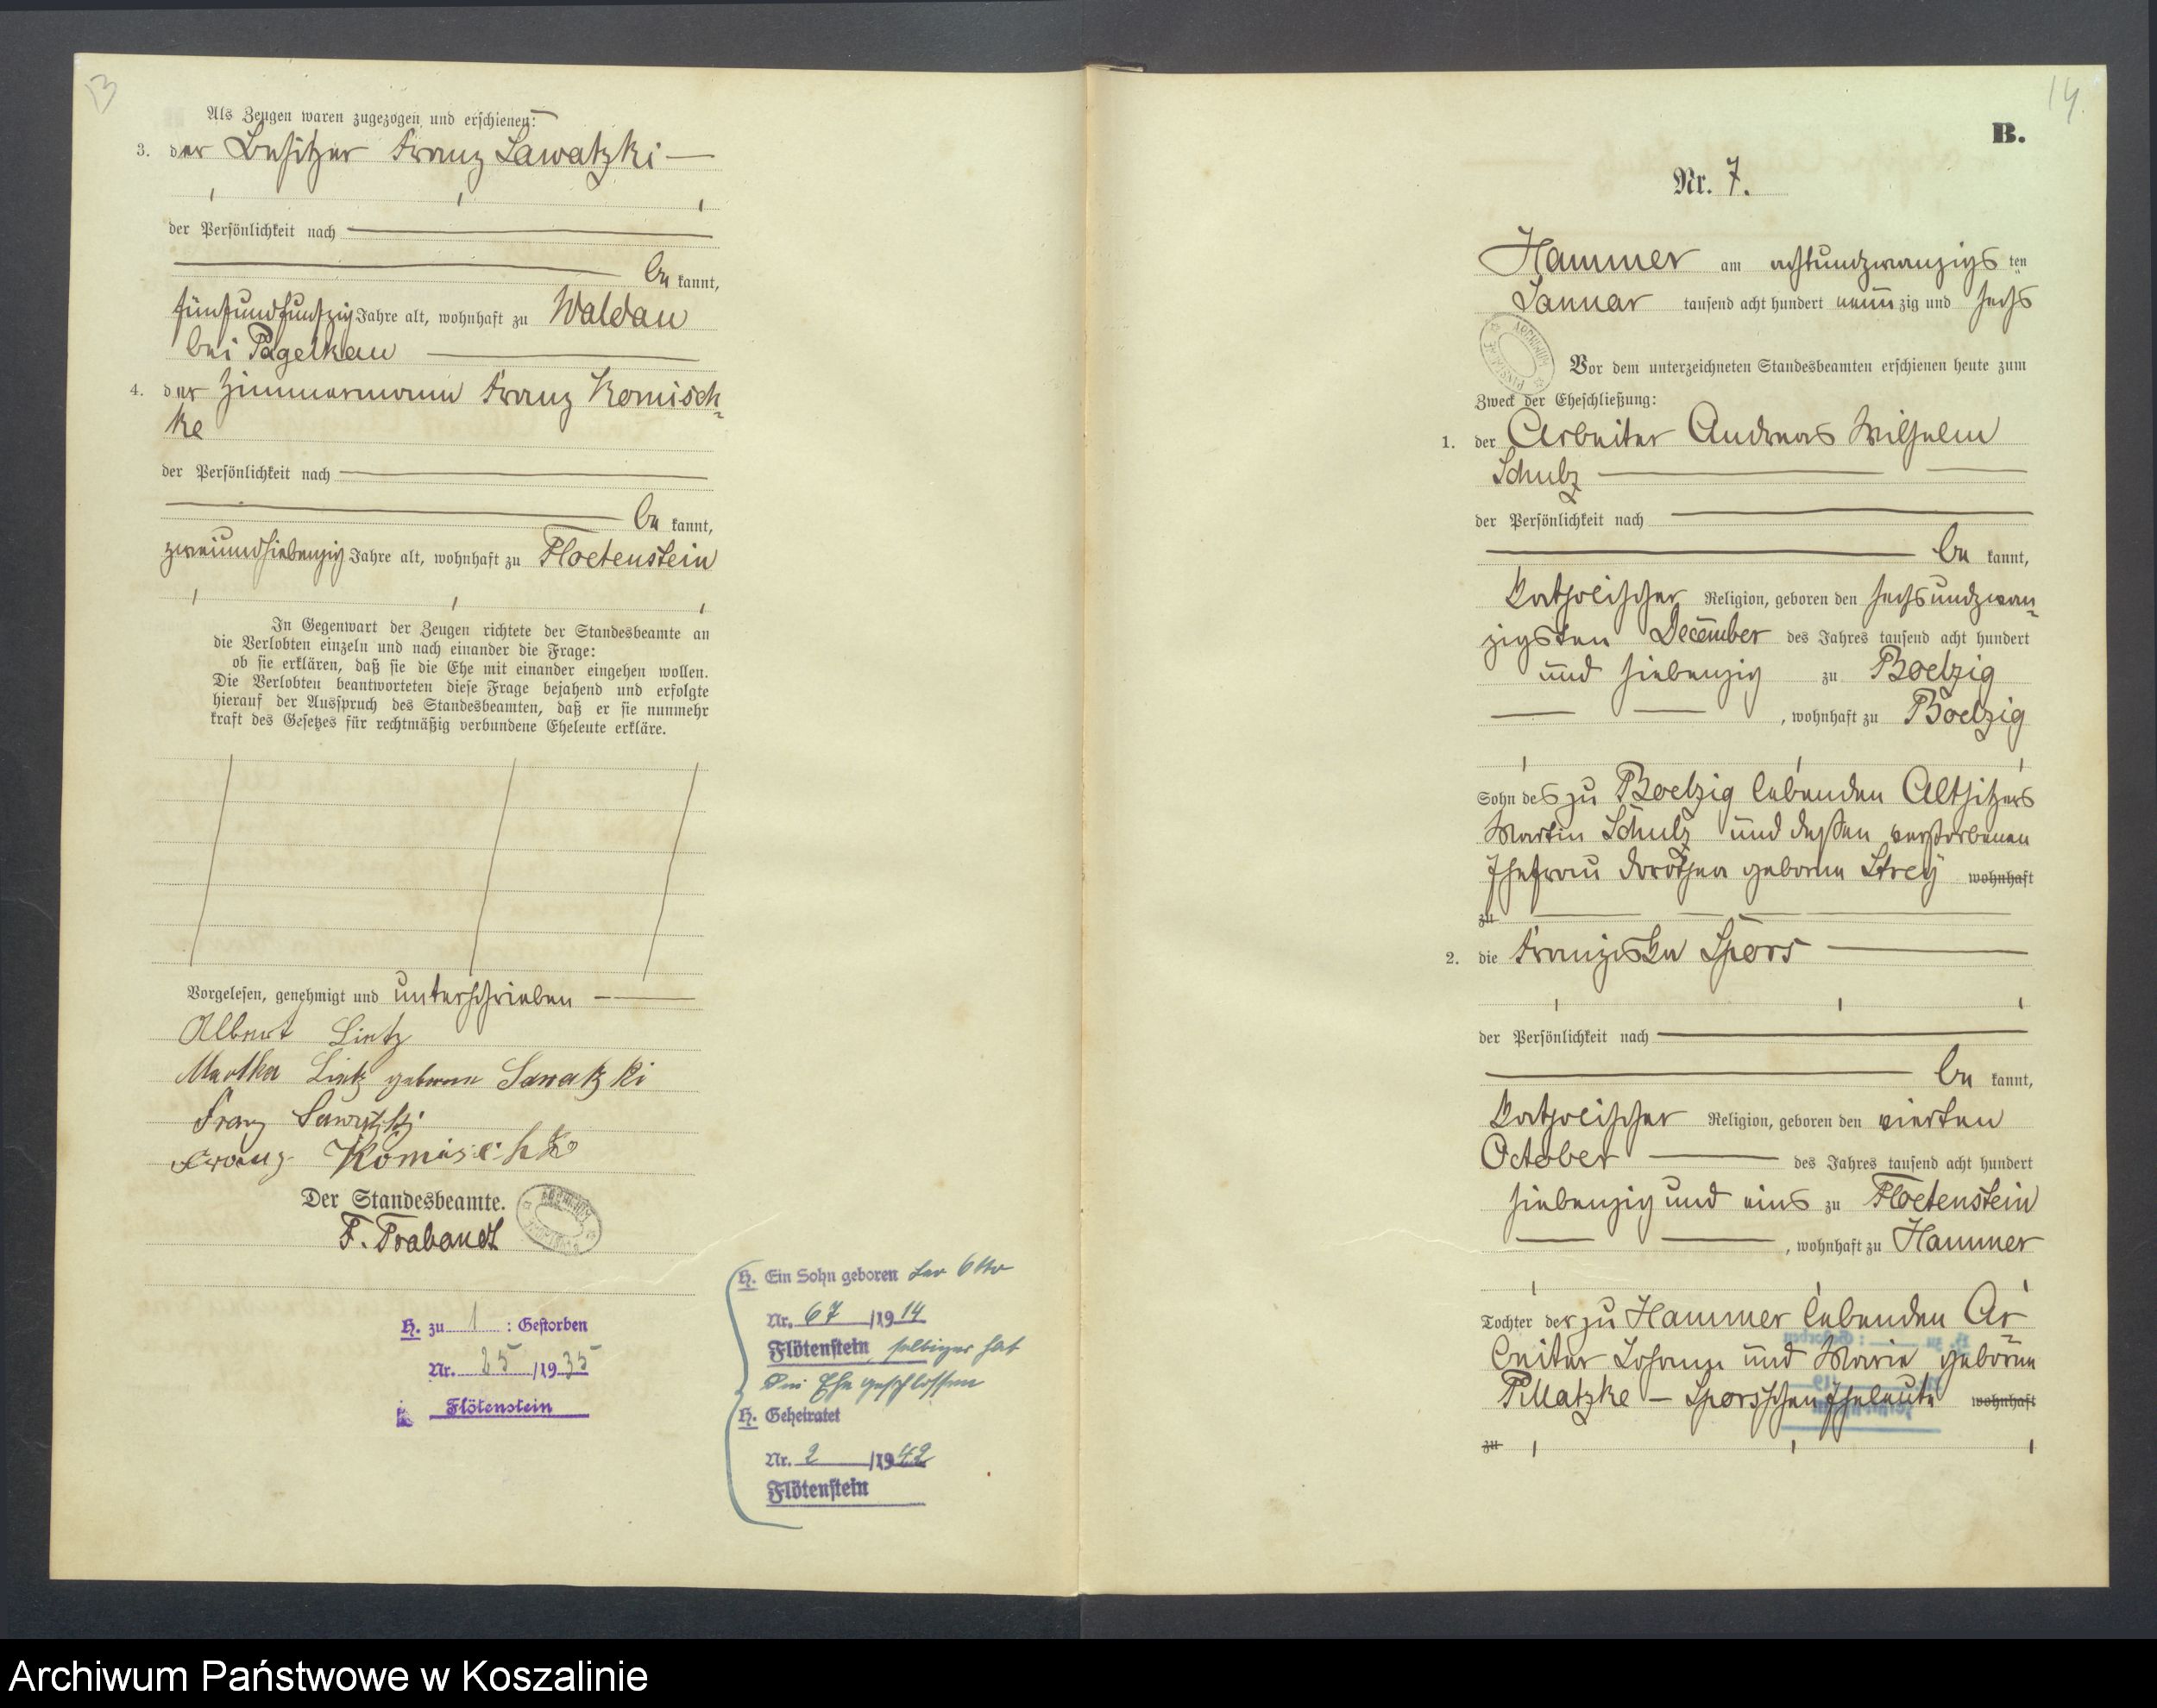 13
Als Zeugen waren zugezogen und erschienen:
3. der Besitzer Franz Sawatzki —
der Persönlichkeit nach
be kannt,
fünfundfunfzig Jahre alt, wohnhaft zu Waldau
bei Pagelkau
4. der Zimmermann Franz Komisch-
ke
der Persönlichkeit nach
be kannt,
zweiundsiebenzig Jahre alt, wohnhaft zu Floetenstein
In Gegenwart der Zeugen richtete der Standesbeamte an
die Verlobten einzeln und nach einander die Frage:
ob sie erklären, daß sie die Ehe mit einander eingehen wollen.
Die Verlobten beantworteten diese Frage bejahend und erfolgte
hierauf der Ausspruch des Standesbeamten, daß er sie nunmehr
kraft des Gesetzes für rechtmäßig verbundene Eheleute erkläre.
Vorgelesen, genehmigt und unterschrieben —
Albert Lietz
Martha Lietz geborene Sawatzki
Franz Sawatzki
Franz Komischke
Der Standesbeamte.
F. Prabandt
H. zu 1 : Gestorben
Nr. 25 /1935
Flötenstein
H. Ein Sohn geboren
Nr. 67 /1914
Flötenstein, selbiger hat
die Ehe geschlossen
H. Geheiratet
Nr. 2 /1942
Flötenstein
14.
B.
Nr. 7.
Hammer am achtundzwanzigs ten
Januar tausend acht hundert neun zig und sechs
Vor dem unterzeichneten Standesbeamten erschienen heute zum
Zweck der Eheschließung:
1. der Arbeiter Andreas Wilhelm
Schulz
der Persönlichkeit nach
be kannt,
katholischer Religion, geboren den sechsundzwan-
zigsten December des Jahres tausend acht hundert
und siebenzig zu Boelzig
, wohnhaft zu Boelzig
Sohn des zu Boelzig lebenden Altsitzers
Martin Schulz und dessen verstorbenen
Ehefrau Dorothea geborne Strey wohnhaft
zu
2. die Franziska Spors
der Persönlichkeit nach
be kannt,
katholischer Religion, geboren den vierten
October des Jahres tausend acht hundert
siebenzig und eins zu Floetenstein
, wohnhaft zu Hammer
Tochter der zu Hammer lebenden Ar-
beiter Johann und Marie geborne
Pillatzke — Sporsschen Eheleute wohnhaft
zu
Archiwum Państwowe w Koszalinie